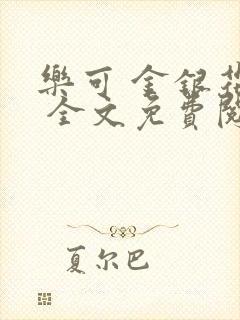 樂可 金銀花
全文免費閱
夏尔巴